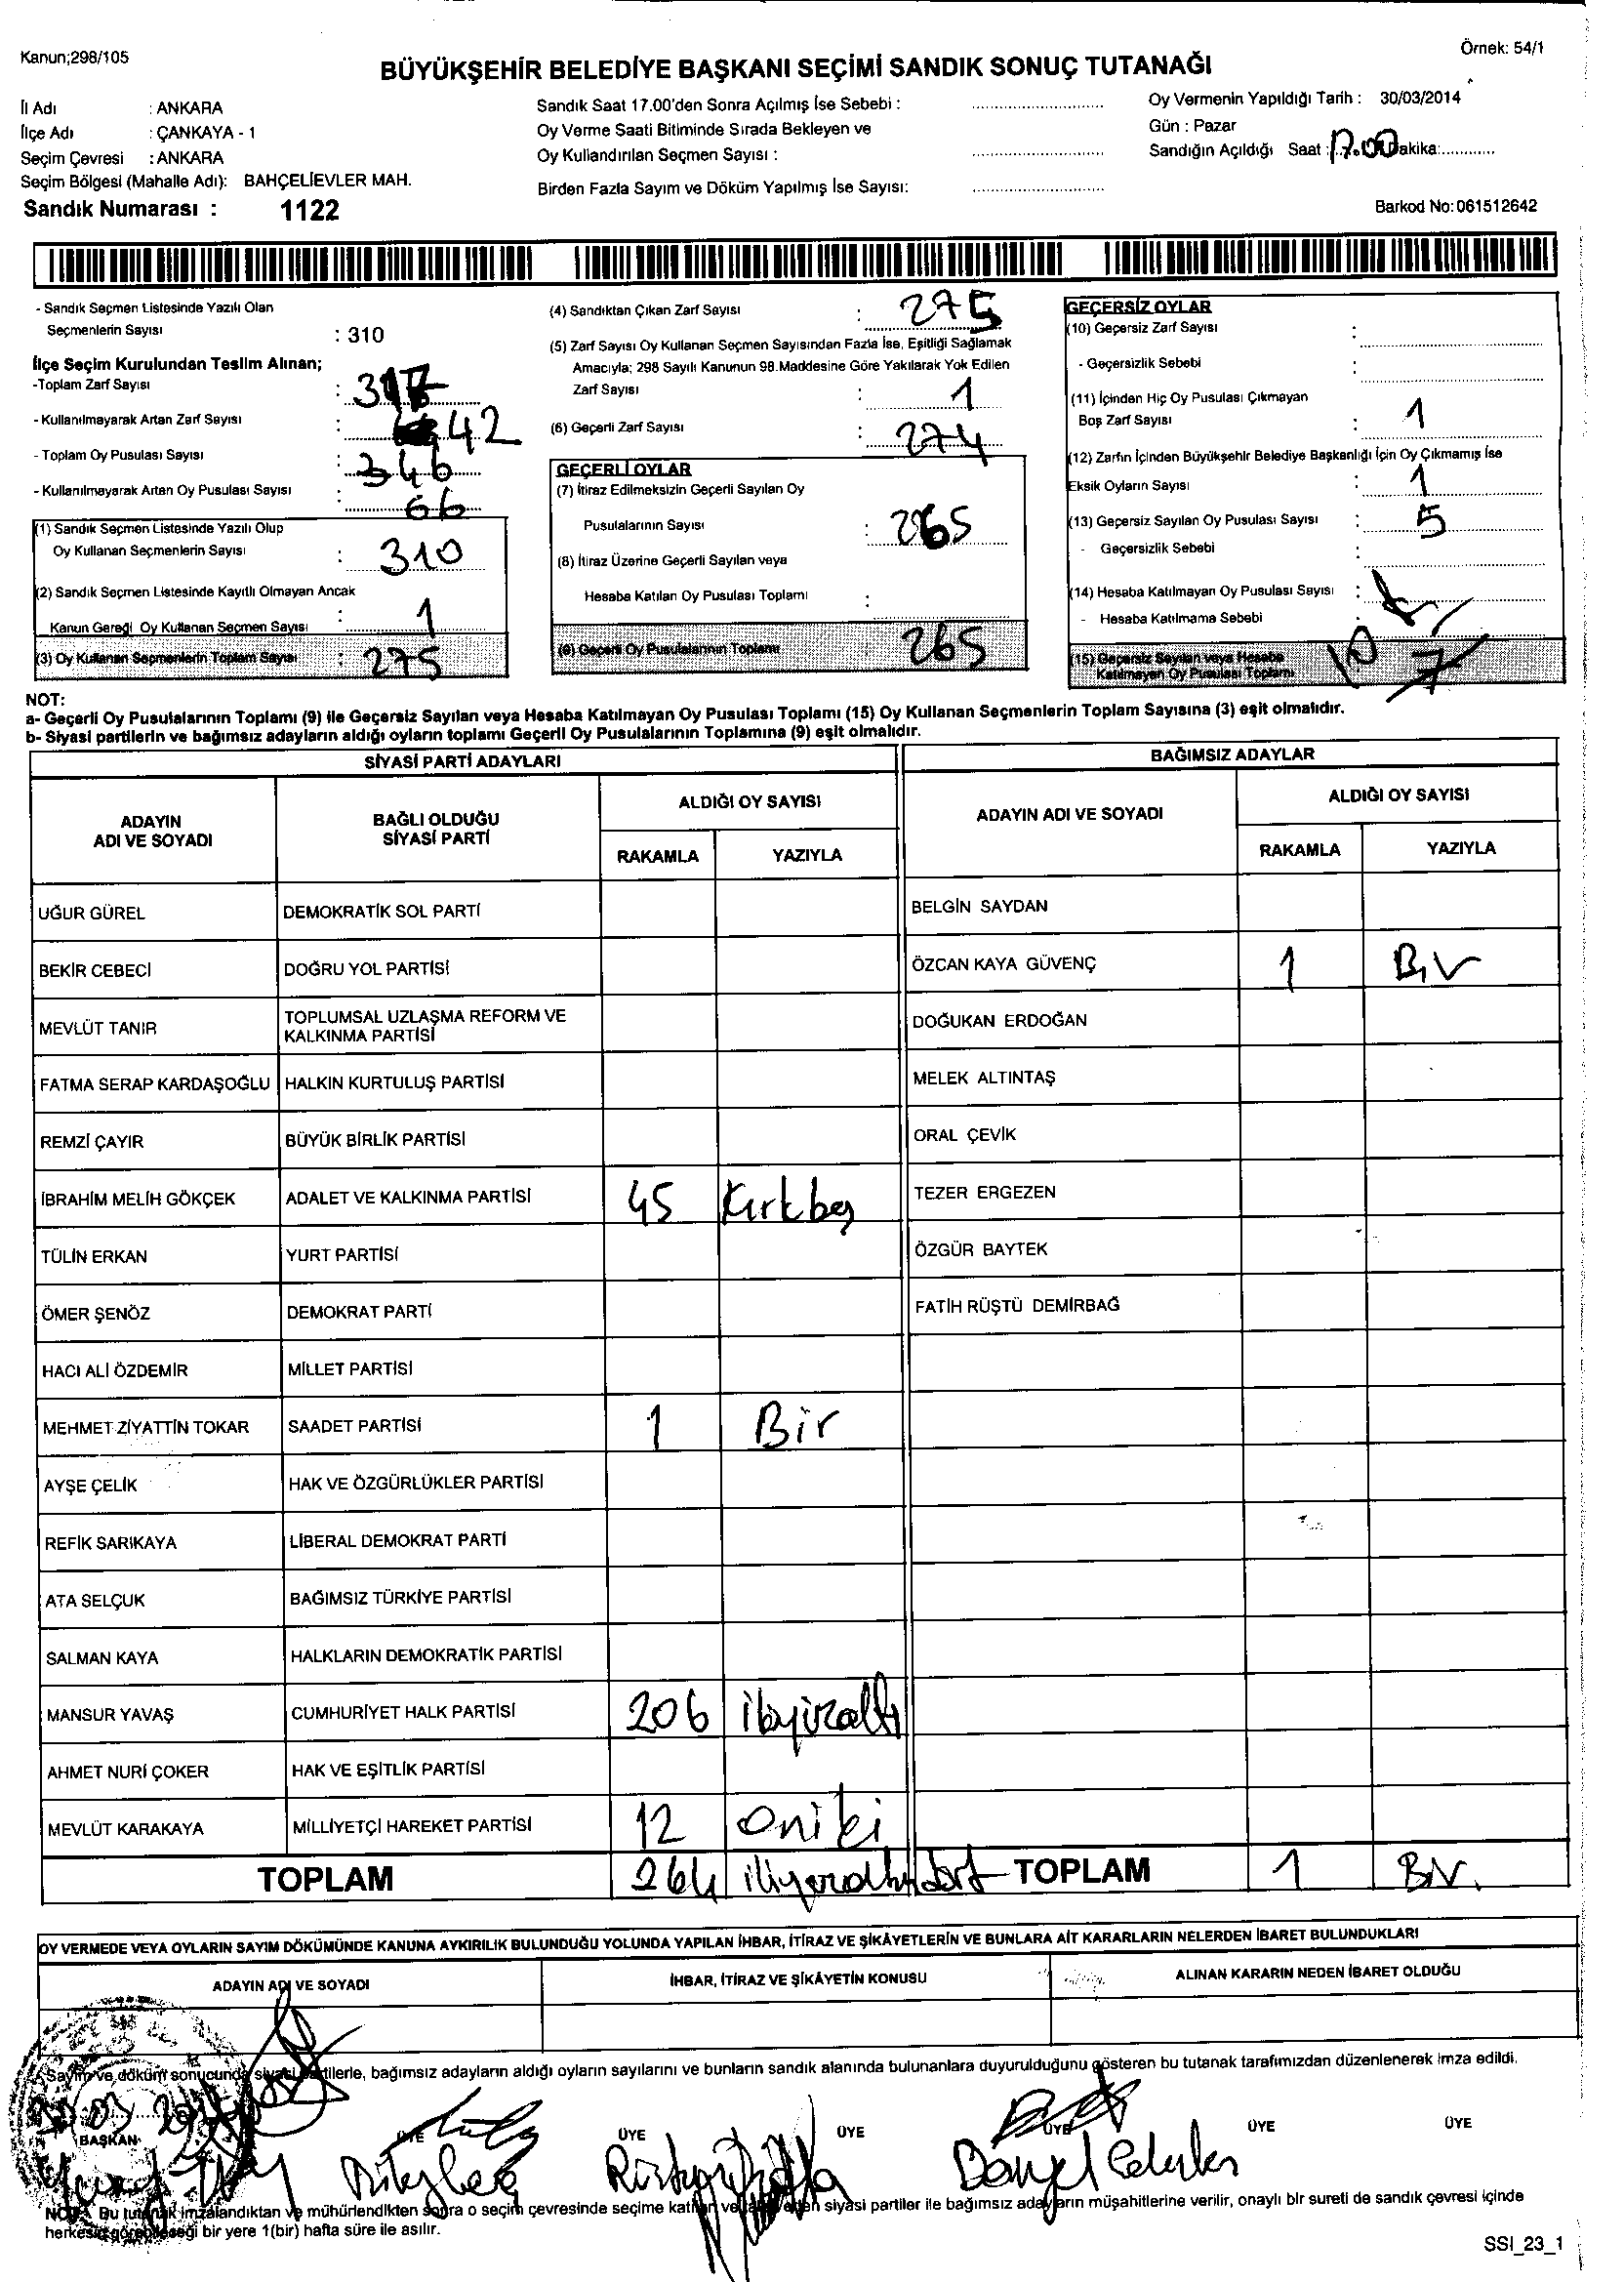 Kanun;298/105
Örnek: 54/1
BÜYÜKŞEHİR BELEDİYE BAŞKANI SEÇİMİ SANDIK SONUÇ TUTANAĞI
İl Adı : ANKARA
İlçe Adı : ÇANKAYA - 1
Seçim Çevresi : ANKARA
Seçim Bölgesi (Mahalle Adı): BAHÇELİEVLER MAH.
Sandık Numarası : 1122
Sandık Saat 17.00'den Sonra Açılmış İse Sebebi :
Oy Verme Saati Bitiminde Sırada Bekleyen ve
Oy Kullandırılan Seçmen Sayısı :
Birden Fazla Sayım ve Döküm Yapılmış İse Sayısı:
Oy Vermenin Yapıldığı Tarih : 30/03/2014
Gün : Pazar
Sandığın Açıldığı Saat : 17.00 Dakika:
Barkod No: 061512642
- Sandık Seçmen Listesinde Yazılı Olan
Seçmenlerin Sayısı : 310
İlçe Seçim Kurulundan Teslim Alınan;
-Toplam Zarf Sayısı :
- Kullanılmayarak Artan Zarf Sayısı : 42
- Toplam Oy Pusulası Sayısı : 346
- Kullanılmayarak Artan Oy Pusulası Sayısı : 66
(1) Sandık Seçmen Listesinde Yazılı Olup
Oy Kullanan Seçmenlerin Sayısı : 310
(2) Sandık Seçmen Listesinde Kayıtlı Olmayan Ancak
Kanun Gereği Oy Kullanan Seçmen Sayısı : 1
(3) Oy Kullanan Seçmenlerin Toplam Sayısı : 275
(4) Sandıktan Çıkan Zarf Sayısı : 275
(5) Zarf Sayısı Oy Kullanan Seçmen Sayısından Fazla İse, Eşitliği Sağlamak
Amacıyla; 298 Sayılı Kanunun 98.Maddesine Göre Yakılarak Yok Edilen
Zarf Sayısı : 1
(6) Geçerli Zarf Sayısı : 274
GEÇERLİ OYLAR
(7) İtiraz Edilmeksizin Geçerli Sayılan Oy
Pusulalarının Sayısı : 265
(8) İtiraz Üzerine Geçerli Sayılan veya
Hesaba Katılan Oy Pusulası Toplamı :
(9) Geçerli Oy Pusulalarının Toplamı 265
GEÇERSİZ OYLAR
(10) Geçersiz Zarf Sayısı :
- Geçersizlik Sebebi :
(11) İçinden Hiç Oy Pusulası Çıkmayan
Boş Zarf Sayısı : 1
(12) Zarfın İçinden Büyükşehir Belediye Başkanlığı İçin Oy Çıkmamış İse
Eksik Oyların Sayısı : 1
(13) Geçersiz Sayılan Oy Pusulası Sayısı : 5
- Geçersizlik Sebebi :
(14) Hesaba Katılmayan Oy Pusulası Sayısı :
- Hesaba Katılmama Sebebi :
(15) Geçersiz Sayılan veya Hesaba
Katılmayan Oy Pusulası Toplamı 10 7
NOT:
a- Geçerli Oy Pusulalarının Toplamı (9) ile Geçersiz Sayılan veya Hesaba Katılmayan Oy Pusulası Toplamı (15) Oy Kullanan Seçmenlerin Toplam Sayısına (3) eşit olmalıdır.
b- Siyasi partilerin ve bağımsız adayların aldığı oyların toplamı Geçerli Oy Pusulalarının Toplamına (9) eşit olmalıdır.
SİYASİ PARTİ ADAYLARI
ADAYIN ADI VE SOYADI
BAĞLI OLDUĞU SİYASİ PARTİ
ALDIĞI OY SAYISI
RAKAMLA YAZIYLA
UĞUR GÜREL DEMOKRATİK SOL PARTİ
BEKİR CEBECİ DOĞRU YOL PARTİSİ
MEVLÜT TANIR TOPLUMSAL UZLAŞMA REFORM VE
KALKINMA PARTİSİ
FATMA SERAP KARDAŞOĞLU HALKIN KURTULUŞ PARTİSİ
REMZİ ÇAYIR BÜYÜK BİRLİK PARTİSİ
İBRAHİM MELİH GÖKÇEK ADALET VE KALKINMA PARTİSİ 45 Kırkbeş
TÜLİN ERKAN YURT PARTİSİ
ÖMER ŞENÖZ DEMOKRAT PARTİ
HACI ALİ ÖZDEMİR MİLLET PARTİSİ
MEHMET ZİYATTİN TOKAR SAADET PARTİSİ 1 Bir
AYŞE ÇELİK HAK VE ÖZGÜRLÜKLER PARTİSİ
REFİK SARIKAYA LİBERAL DEMOKRAT PARTİ
ATA SELÇUK BAĞIMSIZ TÜRKİYE PARTİSİ
SALMAN KAYA HALKLARIN DEMOKRATİK PARTİSİ
MANSUR YAVAŞ CUMHURİYET HALK PARTİSİ 206 ikiyüzaltı
AHMET NURİ ÇOKER HAK VE EŞİTLİK PARTİSİ
MEVLÜT KARAKAYA MİLLİYETÇİ HAREKET PARTİSİ 12 oniki
TOPLAM 264 ikiyüzaltmışdört
BAĞIMSIZ ADAYLAR
ADAYIN ADI VE SOYADI
ALDIĞI OY SAYISI
RAKAMLA YAZIYLA
BELGİN SAYDAN
ÖZCAN KAYA GÜVENÇ 1 Bir
DOĞUKAN ERDOĞAN
MELEK ALTINTAŞ
ORAL ÇEVİK
TEZER ERGEZEN
ÖZGÜR BAYTEK
FATİH RÜŞTÜ DEMİRBAĞ
TOPLAM 1 Bir.
OY VERMEDE VEYA OYLARIN SAYIM DÖKÜMÜNDE KANUNA AYKIRILIK BULUNDUĞU YOLUNDA YAPILAN İHBAR, İTİRAZ VE ŞİKÂYETLERİN VE BUNLARA AİT KARARLARIN NELERDEN İBARET BULUNDUKLARI
ADAYIN ADI VE SOYADI
İHBAR, İTİRAZ VE ŞİKÂYETİN KONUSU
ALINAN KARARIN NEDEN İBARET OLDUĞU
Sayım ve döküm sonucunda siyasi partilerle, bağımsız adayların aldığı oyların sayılarını ve bunların sandık alanında bulunanlara duyurulduğunu gösteren bu tutanak tarafımızdan düzenlenerek imza edildi.
BAŞKAN ÜYE ÜYE ÜYE ÜYE ÜYE ÜYE
NOT: Bu tutanak imzalandıktan ve mühürlendikten sonra o seçim çevresinde seçime katılan ve siyasi partiler ile bağımsız adayların müşahitlerine verilir, onaylı bir sureti de sandık çevresi içinde
herkesin görebileceği bir yere 1(bir) hafta süre ile asılır.
SSI_23_1